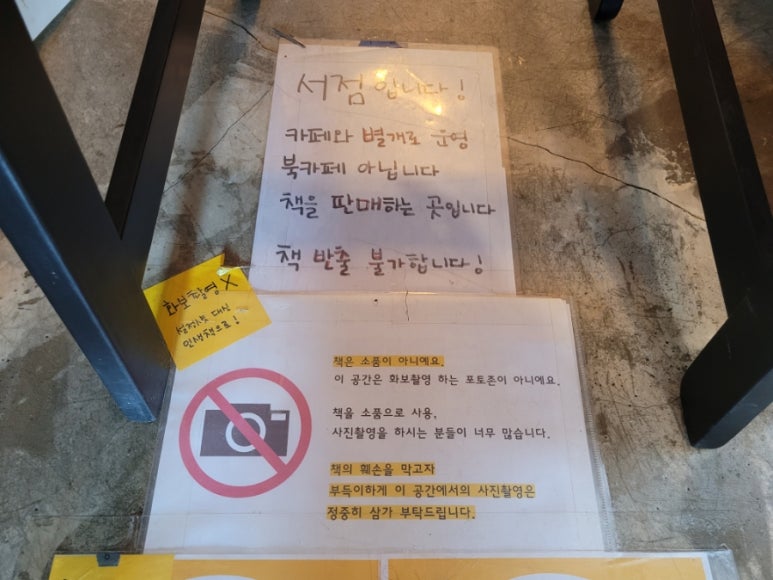 서점입니다!
카페와 별개로 운영
북카페 아닙니다
책을 판매하는 곳입니다
책 반출 불가합니다!
화보촬영 X
설정샷 대신
인생책으로!
책은 소품이 아니예요.
이 공간은 화보촬영 하는 포토존이 아니에요.
책을 소품으로 사용,
사진촬영을 하시는 분들이 너무 많습니다.
책의 훼손을 막고자
부득이하게 이 공간에서의 사진촬영은
정중히 삼가 부탁드립니다.